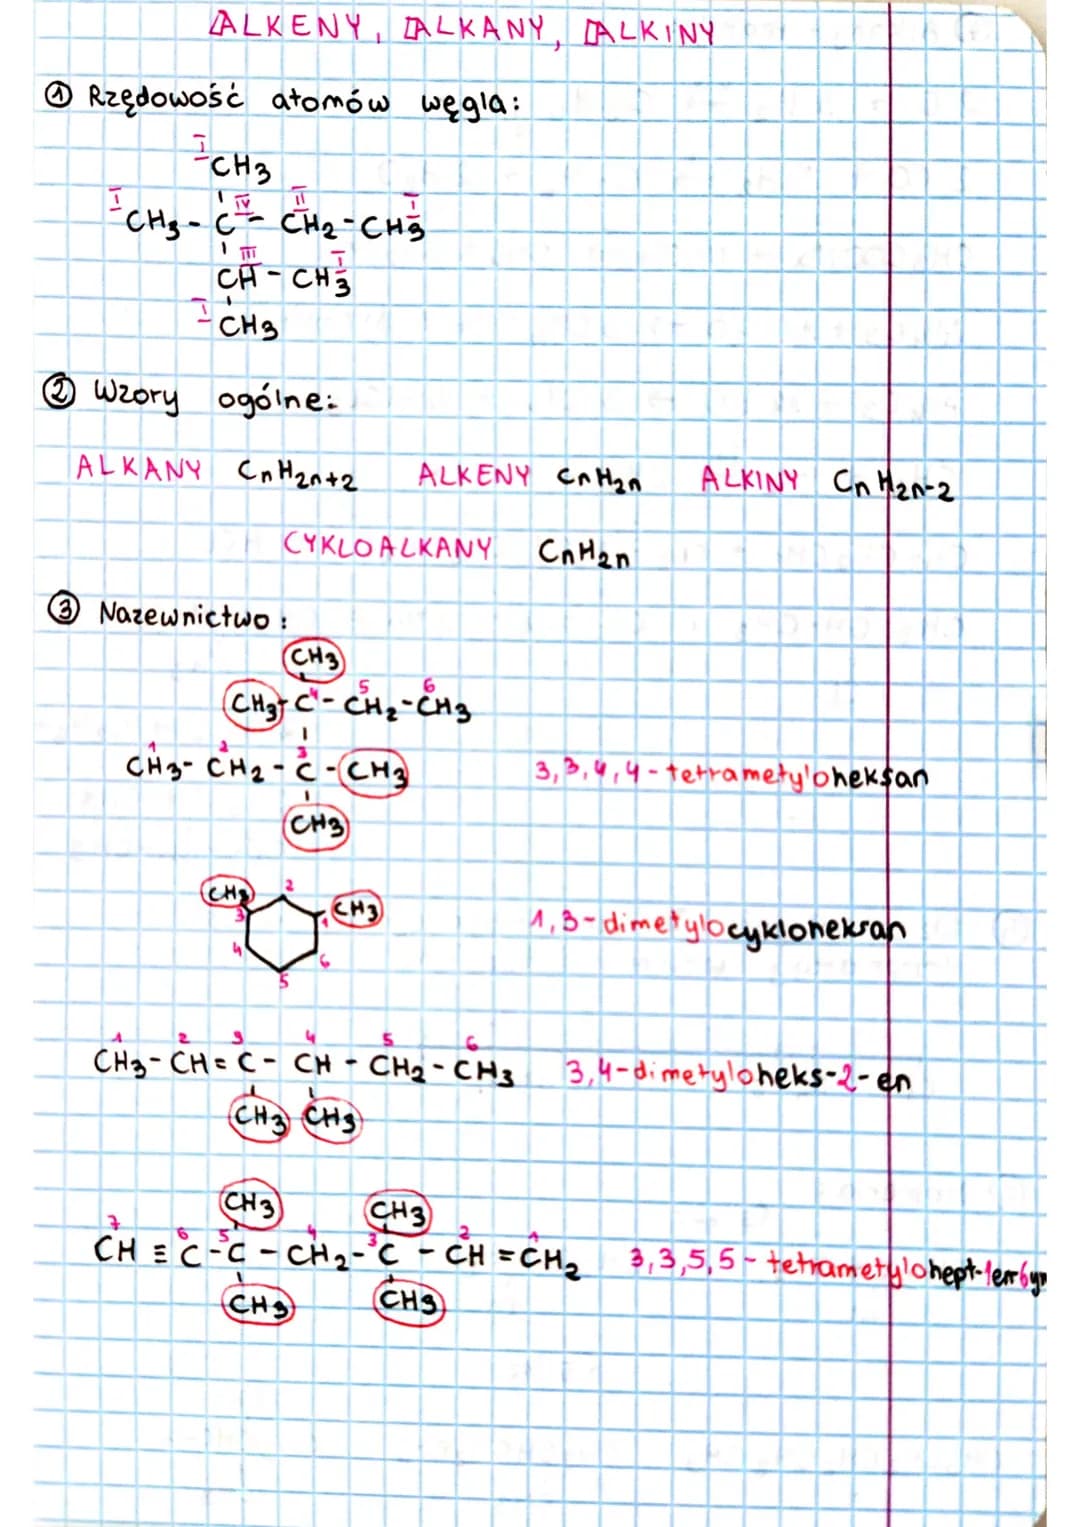 ALKENY, ALKANY, ALKINY
① Rzędowość atomów węgla:
I CH3
I CH3 - C IV - CH2 II - CH3 I
CH III - CH3 I
I CH3
② Wzory ogólne:
ALKANY CnH2n+2 ALKENY CnH2n ALKINY CnH2n-2
CYKLOALKANY CnH2n
③ Nazewnictwo:
CH3
4 5 6
CH3 - C - CH2 - CH3
1 2 3
CH3 - CH2 - C - CH3 3,3,4,4-tetrametyloheksan
CH3
CH3 2
3 1 CH3 1,3-dimetylocykloheksan
4 6
5
1 2 3 4 5 6
CH3 - CH = C - CH - CH2 - CH3 3,4-dimetyloheks-2-en
CH3 CH3
CH3 CH3
7 6 5 4 3 2 1
CH ≡ C - C - CH2 - C - CH = CH2 3,3,5,5-tetrametylohept-1en-6yn
CH3 CH3